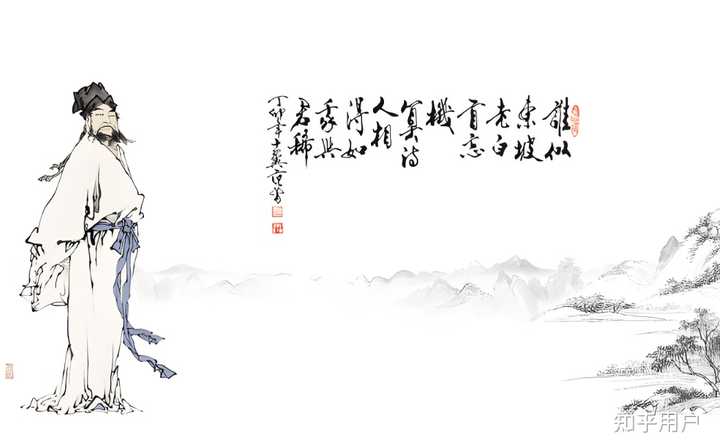 誰似
東坡
老白
首忘
機
算詩
人相
得如
我與
君稀
丁卯年十翼范曾
知乎用户